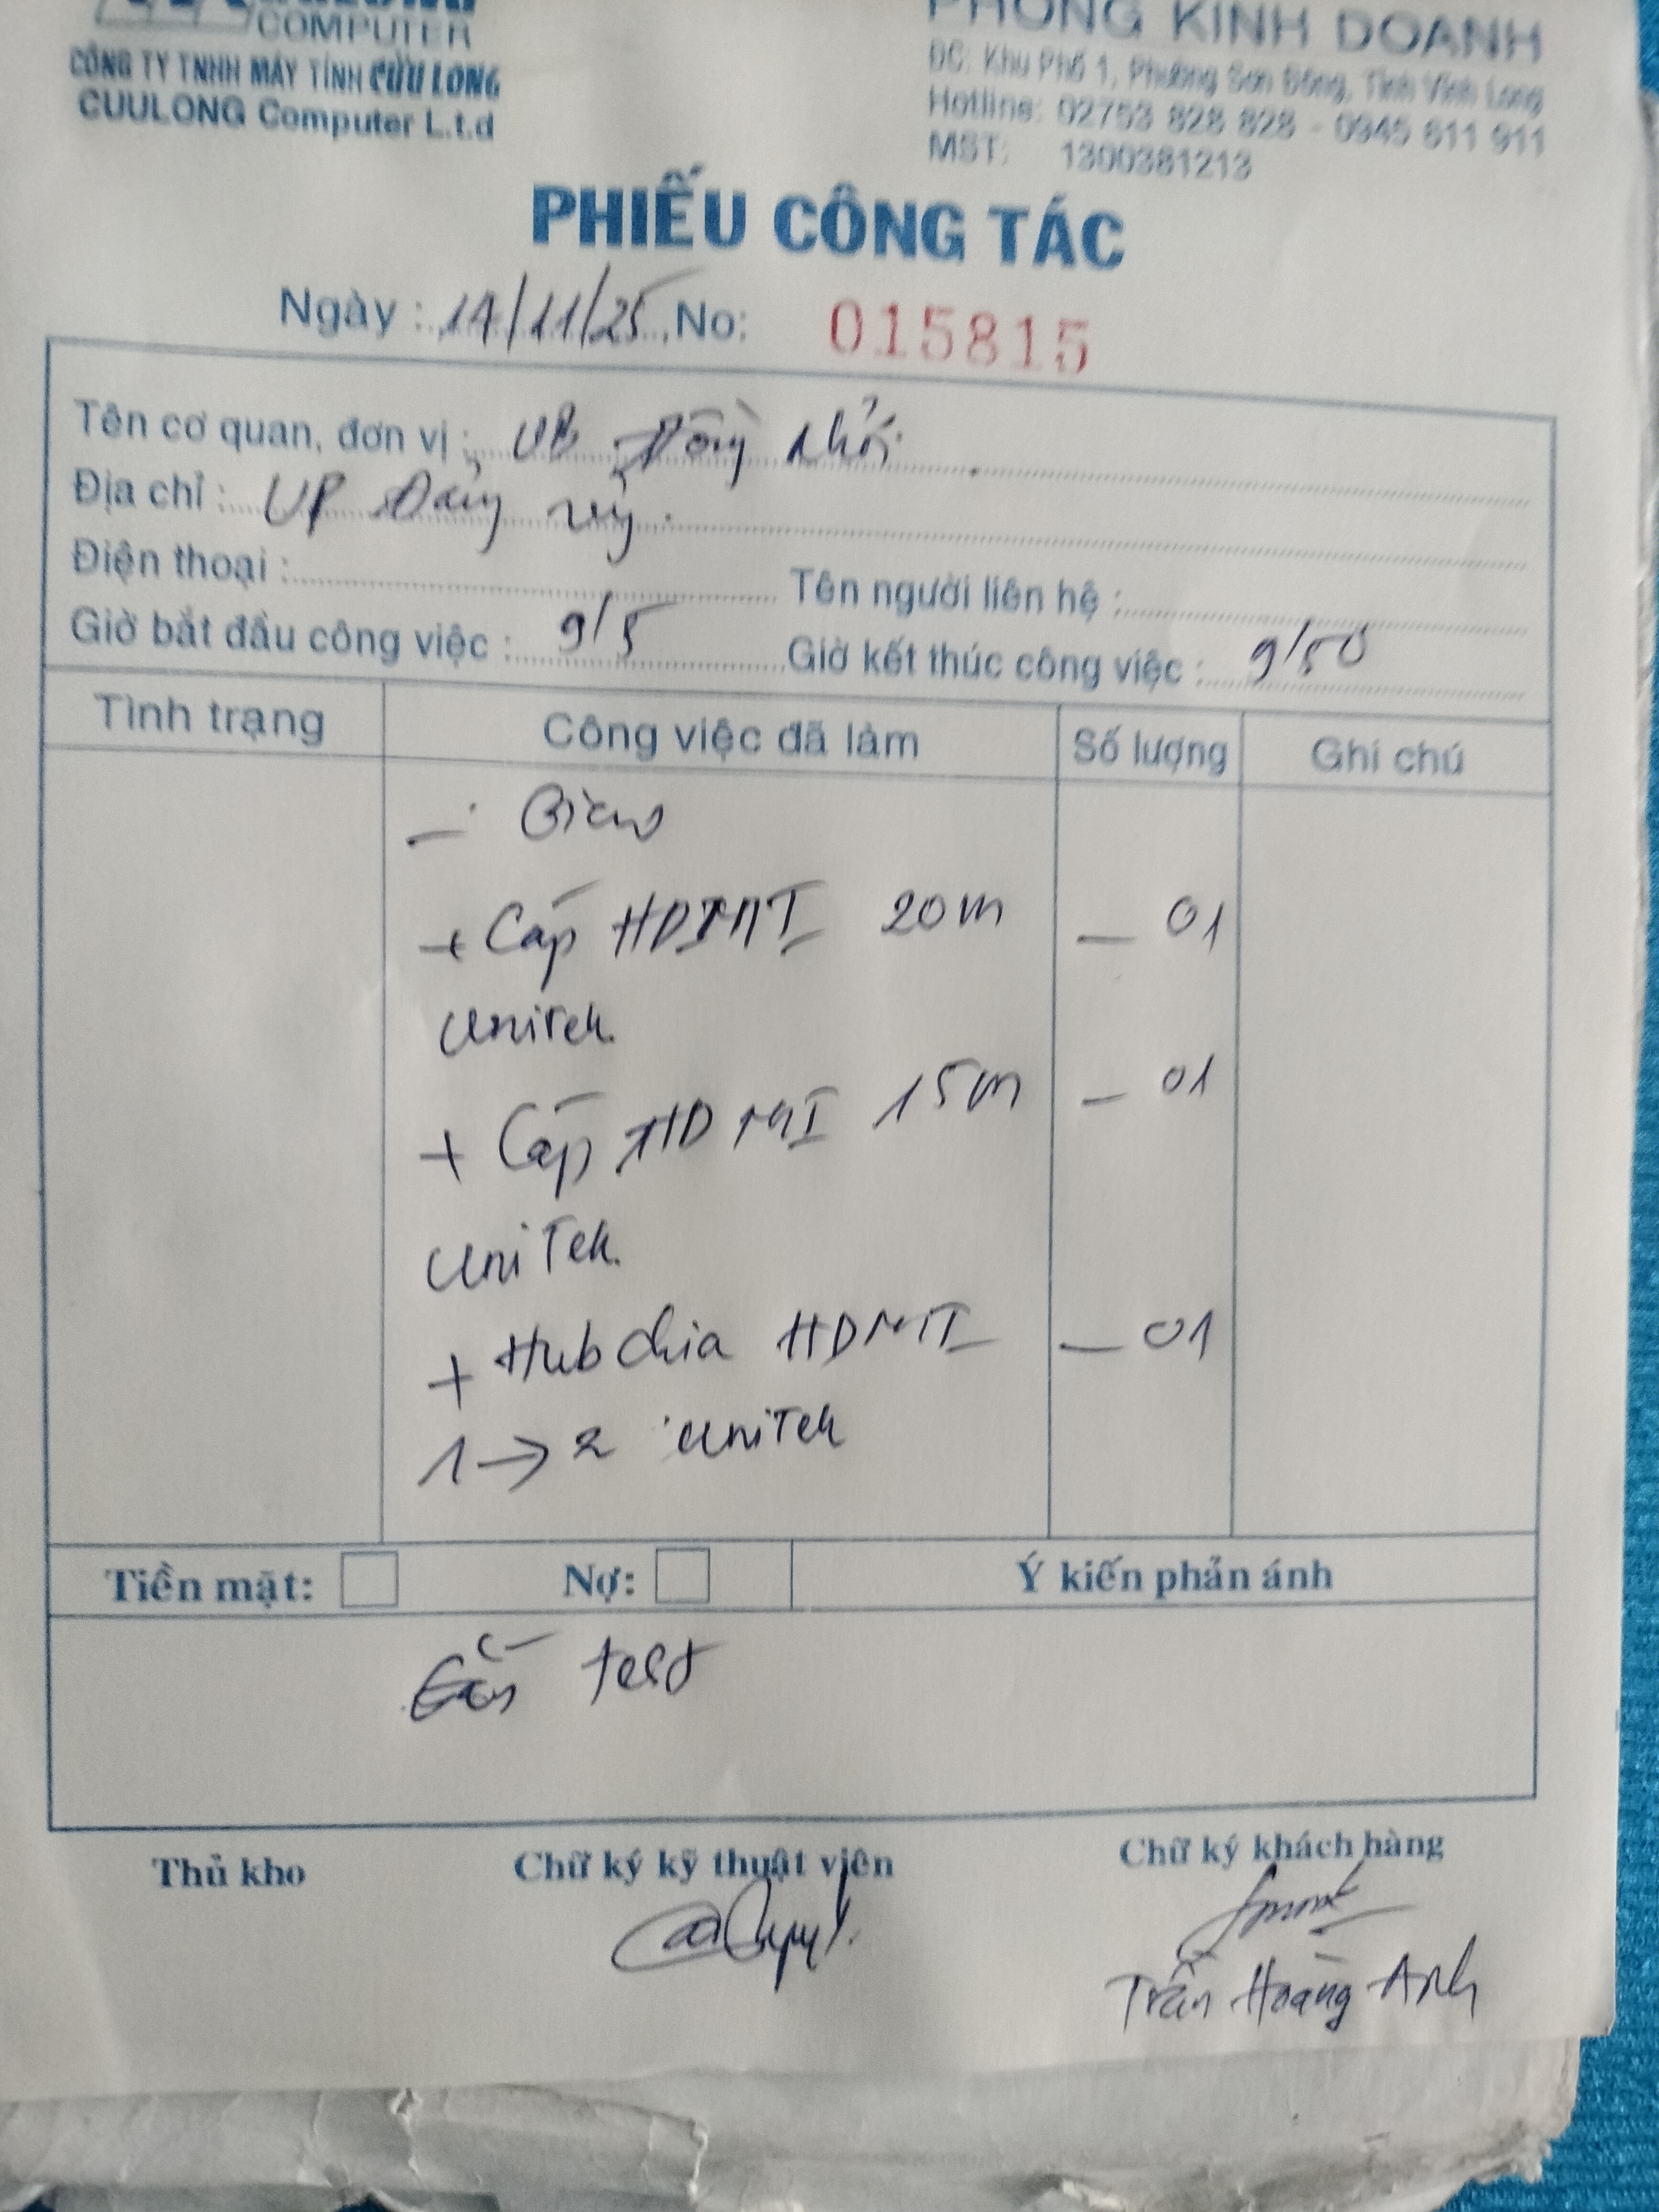 COMPUTER
CÔNG TY TNHH MÁY TÍNH CỬU LONG
CUULONG Computer L.t.d
PHÒNG KINH DOANH
ĐC: Khu Phố 1, Phường Sơn Đông, Tỉnh Vĩnh Long
Hotline: 02753 828 828 - 0945 611 911
MST: 1300381213
PHIẾU CÔNG TÁC
Ngày : 14/11/25 No: 015815
Tên cơ quan, đơn vị : UB Đồng Khởi
Địa chỉ : VP Đảng ủy.
Điện thoại : Tên người liên hệ :
Giờ bắt đầu công việc : 9/5 Giờ kết thúc công việc : 9/50
Tình trạng Công việc đã làm Số lượng Ghi chú
- Giao
+ Cáp HDMI 20m - 01
Unitek.
+ Cáp HDMI 15m - 01
UniTek.
+ Hub chia HDMI - 01
1 → 2 UniTek
Tiền mặt: Nợ: Ý kiến phản ánh
test
Thủ kho Chữ ký kỹ thuật viên Chữ ký khách hàng
Trần Hoàng Anh